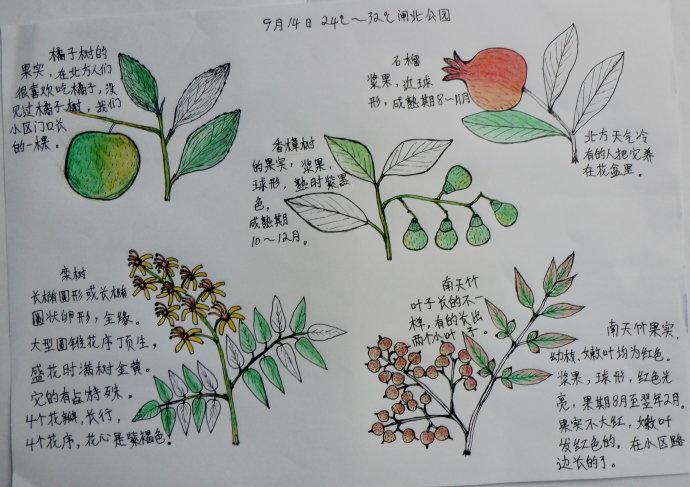 9月14日 24℃~32℃ 闸北公园
橘子树的
果实，在北方人们
很喜欢吃橘子，没
见过橘子树，我们
小区门口长
的一棵。
石榴
浆果，近球
形，成熟期8~11月
北方天气冷
有的人把它养
在花盆里。
香樟树
的果实，浆果，
球形，熟时紫黑
色，
成熟期
10~12月。
栾树
长椭圆形或长椭
圆状卵形，全缘。
大型圆锥花序顶生，
盛花时满树金黄。
它的有点特殊。
4个花瓣，长行，
4个花序，花心是紫褐色。
南天竹
叶子长的不一
样，有的长出
两个小叶子。
南天竹果实，
幼枝、嫩叶均为红色。
浆果，球形，红色光
亮，果期8月至翌年2月。
果实不大红，嫩叶
发红色的，在小区路
边长的了。